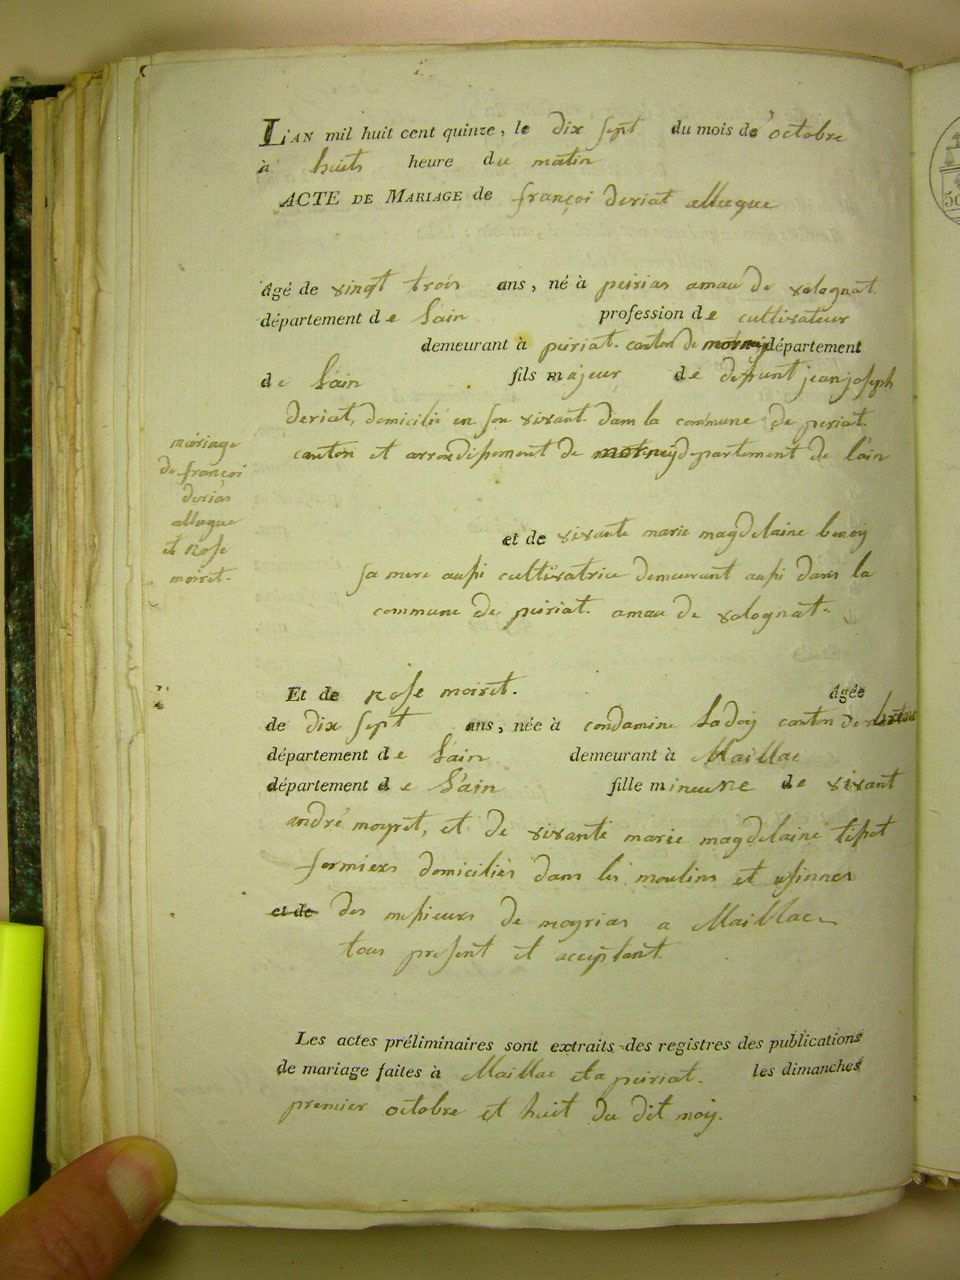 L'AN mil huit cent quinze, le dix sept du mois de octobre
à huits heure du matin
ACTE DE MARIAGE de françoi deriat allegue
âgé de vingt trois ans, né à peirias amau de volognat
département de Lain profession de cultivateur
demeurant à peiriat. canton de département
de Lain fils majeur de defunt jean joseph
deriat, domicilié en son vivant dans la commune de periat.
canton et arrondisement de departement de lain
mariage
de françoi
derias
allegue
et Rose
moiret.
et de vivante marie magdelaine benoy
sa mere aussi cultivatrice demeurant aussi dans la
commune de peiriat. amau de volognat.
Et de Rose moiret. âgée
de dix sept ans, née à condamine Ladoy canton de
département de Lain demeurant à Maillac
département de Lain fille mineure de vivant
andré moyret, et de vivante marie magdelaine tisset
fermiers domiciliés dans les moulins et usinnes
et de des messieurs de moyrias a Maillac
tous present et acceptant
Les actes préliminaires sont extraits des registres des publications
de mariage faites à Maillac et a peiriat. les dimanches
premier octobre et huit du dit moy.
50